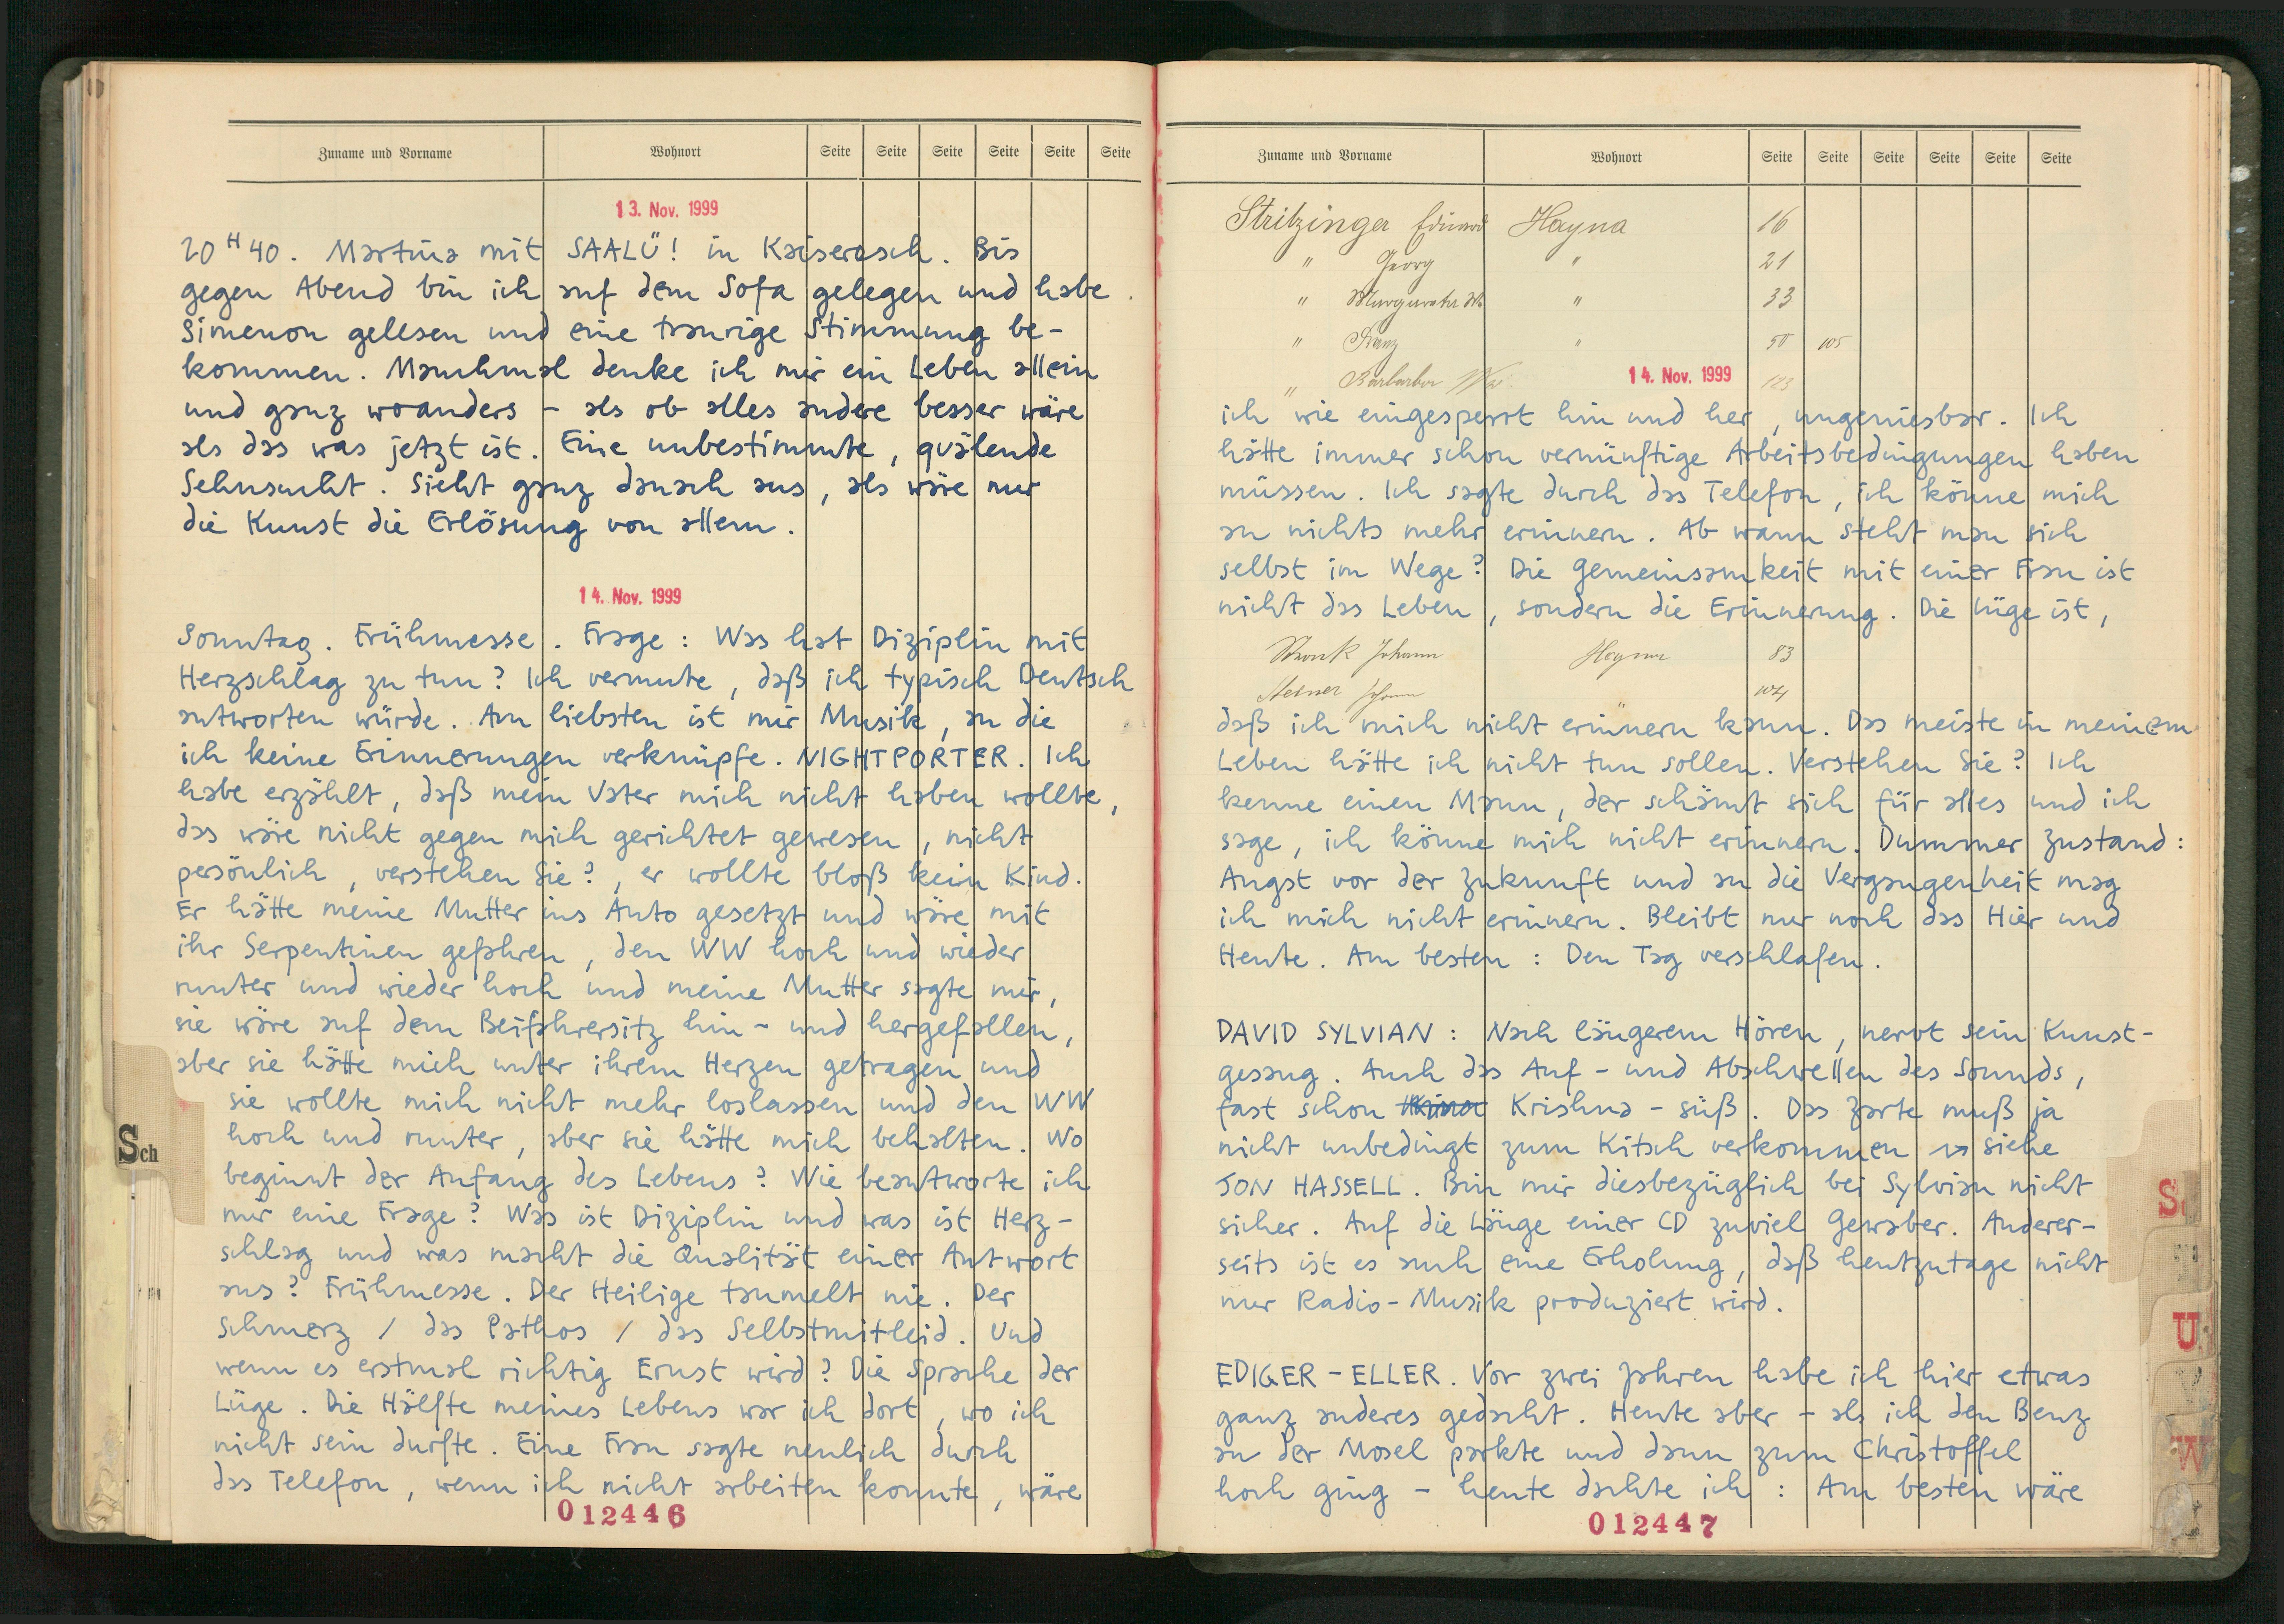 Zuname und Vorname Wohnort Seite Seite Seite Seite Seite Seite
13. Nov. 1999
20 H 40. Martina mit SAALÜ! in Kaisersesch. Bis
gegen Abend bin ich auf dem Sofa gelegen und habe
Simenon gelesen und eine traurige Stimmung be-
kommen. Manchmal denke ich mir ein Leben allein
und ganz woanders – als ob alles andere besser wäre
als das was jetzt ist. Eine unbestimmte, quälende
Sehnsucht. Sieht ganz danach aus, als wäre nur
die Kunst die Erlösung von allem.
14. Nov. 1999
Sonntag. Frühmesse. Frage: Was hat Diziplin mit
Herzschlag zu tun? Ich vermute, daß ich typisch Deutsch
antworten würde. Am liebsten ist mir Musik, an die
ich keine Erinnerungen verknüpfe. NIGHTPORTER. Ich
habe erzählt, daß mein Vater mich nicht haben wollte,
das wäre nicht gegen mich gerichtet gewesen, nicht
persönlich, verstehen Sie?, er wollte bloß kein Kind.
Er hätte meine Mutter ins Auto gesetzt und wäre mit
ihr Serpentinen gefahren, den WW hoch und wieder
runter und wieder hoch und meine Mutter sagte mir,
sie wäre auf dem Beifahrersitz hin- und hergefallen,
aber sie hätte mich unter ihrem Herzen getragen und
sie wollte mich nicht mehr loslassen und den WW
hoch und runter, aber sie hätte mich behalten. Wo
beginnt der Anfang des Lebens? Wie beantworte ich
mir eine Frage? Was ist Diziplin und was ist Herz-
schlag und was macht die Qualität einer Antwort
aus? Frühmesse. Der Heilige taumelt nie. Der
Schmerz / das Pathos / das Selbstmitleid. Und
wenn es erstmal richtig Ernst wird? Die Sprache der
Lüge. Die Hälfte meines Lebens war ich dort, wo ich
nicht sein durfte. Eine Frau sagte neulich durch
das Telefon, wenn ich nicht arbeiten konnte, wäre
012446
Sch
Zuname und Vorname Wohnort Seite Seite Seite Seite Seite Seite
Stritzinger Eduard Hayna 16
" Georg " 21
" " 33
" Franz "
" Barbara
14. Nov. 1999
ich wie eingesperrt hin und her, ungeniesbar. Ich
hätte immer schon vernünftige Arbeitsbedingungen haben
müssen. Ich sagte durch das Telefon, ich könne mich
an nichts mehr erinnern. Ab wann steht man sich
selbst im Wege? Die Gemeinsamkeit mit einer Frau ist
nicht das Leben, sondern die Erinnerung. Die Lüge ist,
Johann Hayna 83
Johann 104
daß ich mich nicht erinnern kann. Das meiste in meinem
Leben hätte ich nicht tun sollen. Verstehen Sie? Ich
kenne einen Mann, der schämt sich für alles und ich
sage, ich könne mich nicht erinnern. Dummer Zustand:
Angst vor der Zukunft und an die Vergangenheit mag
ich mich nicht erinnern. Bleibt nur noch das Hier und
Heute. Am besten: Den Tag verschlafen.
DAVID SYLVIAN: Nach längerem Hören, nervt sein Kunst-
gesang. Auch das Auf- und Abschwellen des Sounds,
fast schon Krishna-süß. Das Zarte muß ja
nicht unbedingt zum Kitsch verkommen → siehe
JON HASSELL. Bin mir diesbezüglich bei Sylvian nicht
sicher. Auf die Länge einer CD zuviel Gewaber. Anderer-
seits ist es auch eine Erholung, daß heutzutage nicht
nur Radio-Musik produziert wird.
EDIGER-ELLER. Vor zwei Jahren habe ich hier etwas
ganz anderes gedacht. Heute aber – als ich den Benz
an der Mosel parkte und dann zum Christoffel
hoch ging – heute dachte ich: Am besten wäre
012447
U
W